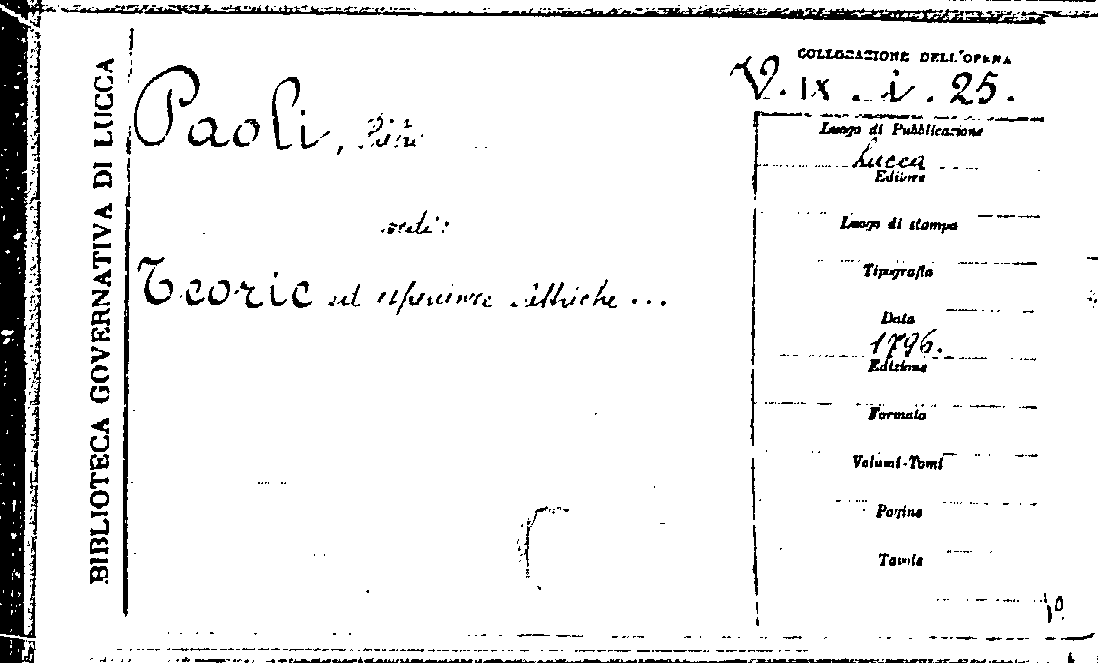 BIBLIOTECA GOVERNATIVA DI LUCCA
Paoli,
vedi:
Teorie ed esperienze elettriche...
COLLOCAZIONE DELL'OPERA
V. IX . i . 25.
Luogo di Pubblicazione
Lucca
Editore
Luogo di stampa
Tipografia
Data
1796.
Edizione
Formato
Volumi-Tomi
Pagine
Tavole